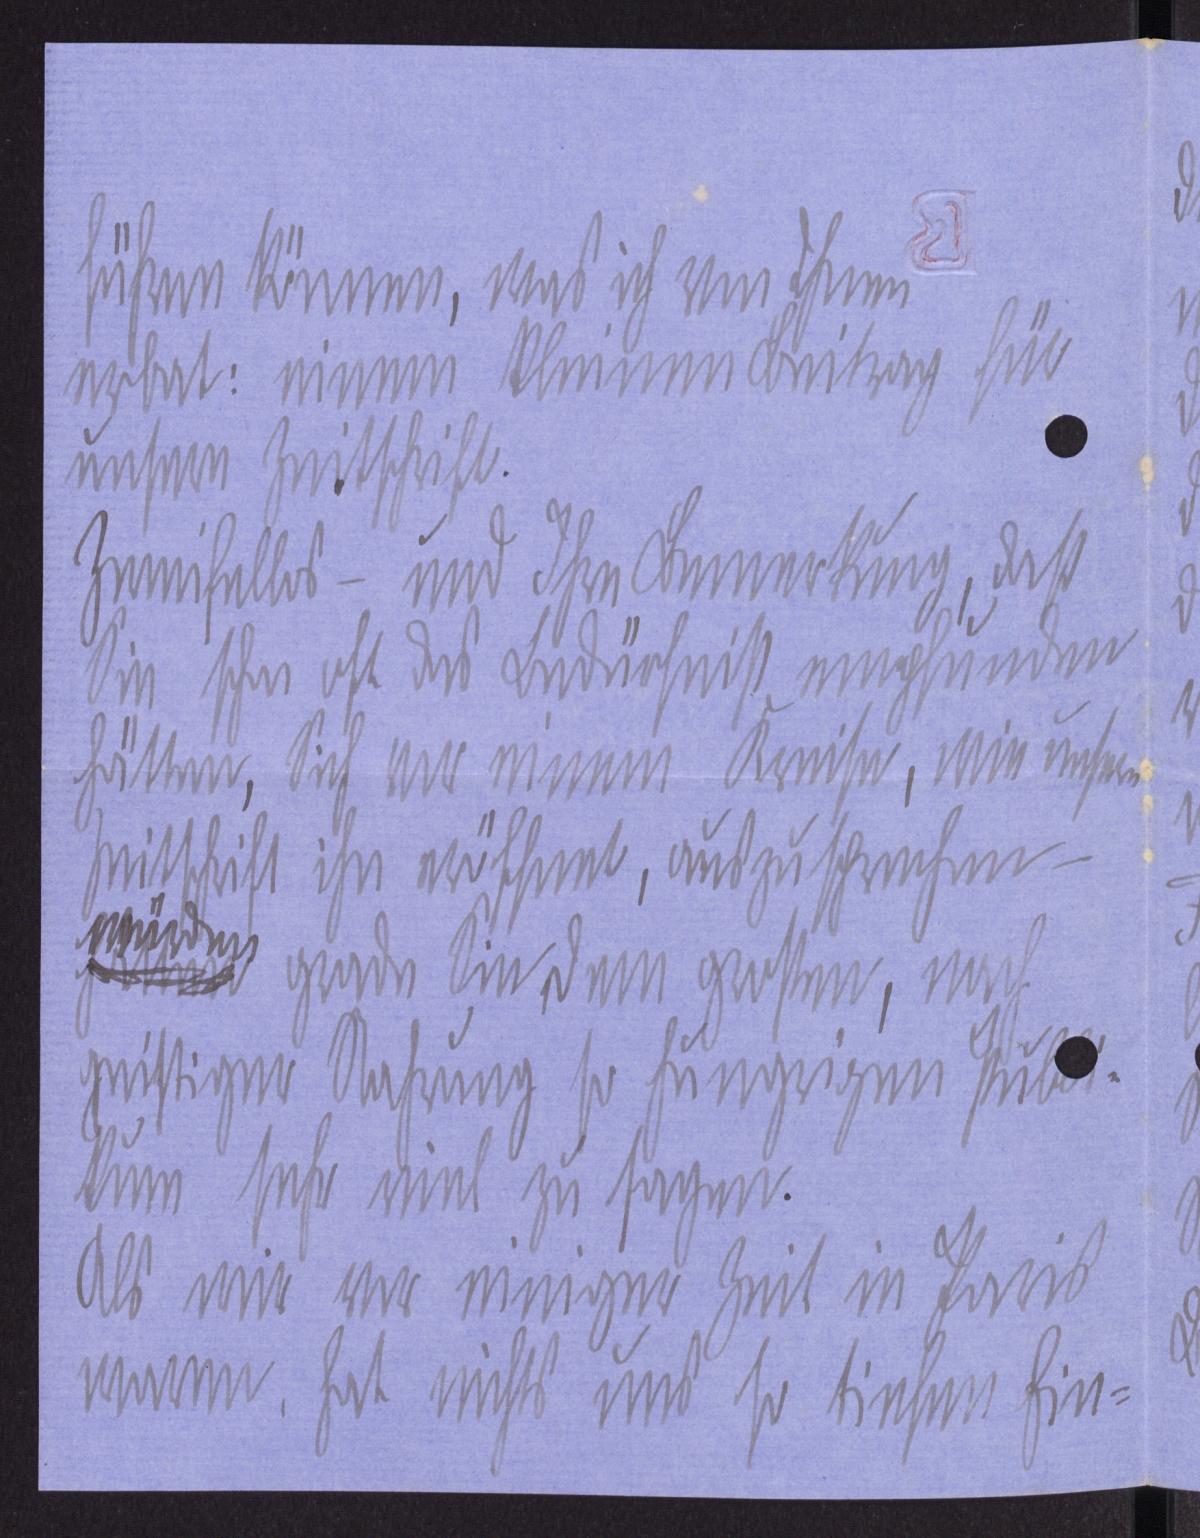 führen können, was ich von Ihnen
erbat: einen kleinen Beitrag für
unsere Zeitschrift.
Zweifellos – und Ihre Bemerkung, daß
Sie schon oft das Bedürfniß empfunden
hätten, Sich vor einem Kreise, wie unsere
Zeitschrift ihn eröffnet, auszusprechen –
würden
grade Sie dem großen, nach
geistiger Nahrung so hungrigen Publi-
kum sehr viel zu sagen.
Als wir vor einiger Zeit in Paris
waren, hat nichts uns so tiefen Ein=